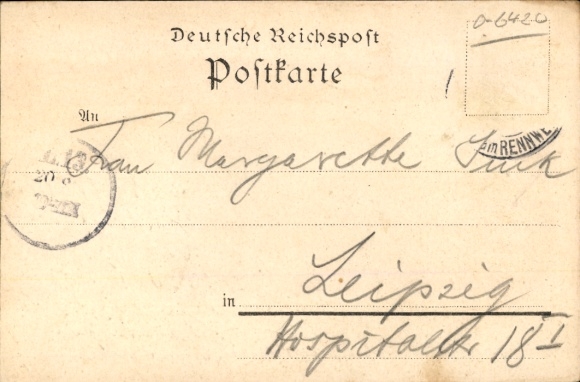 0-6420
Deutsche Reichspost
Postkarte
An
Frau Margarethe
am RENNWE
20
in Leipzig
Hospitalstr 18 I